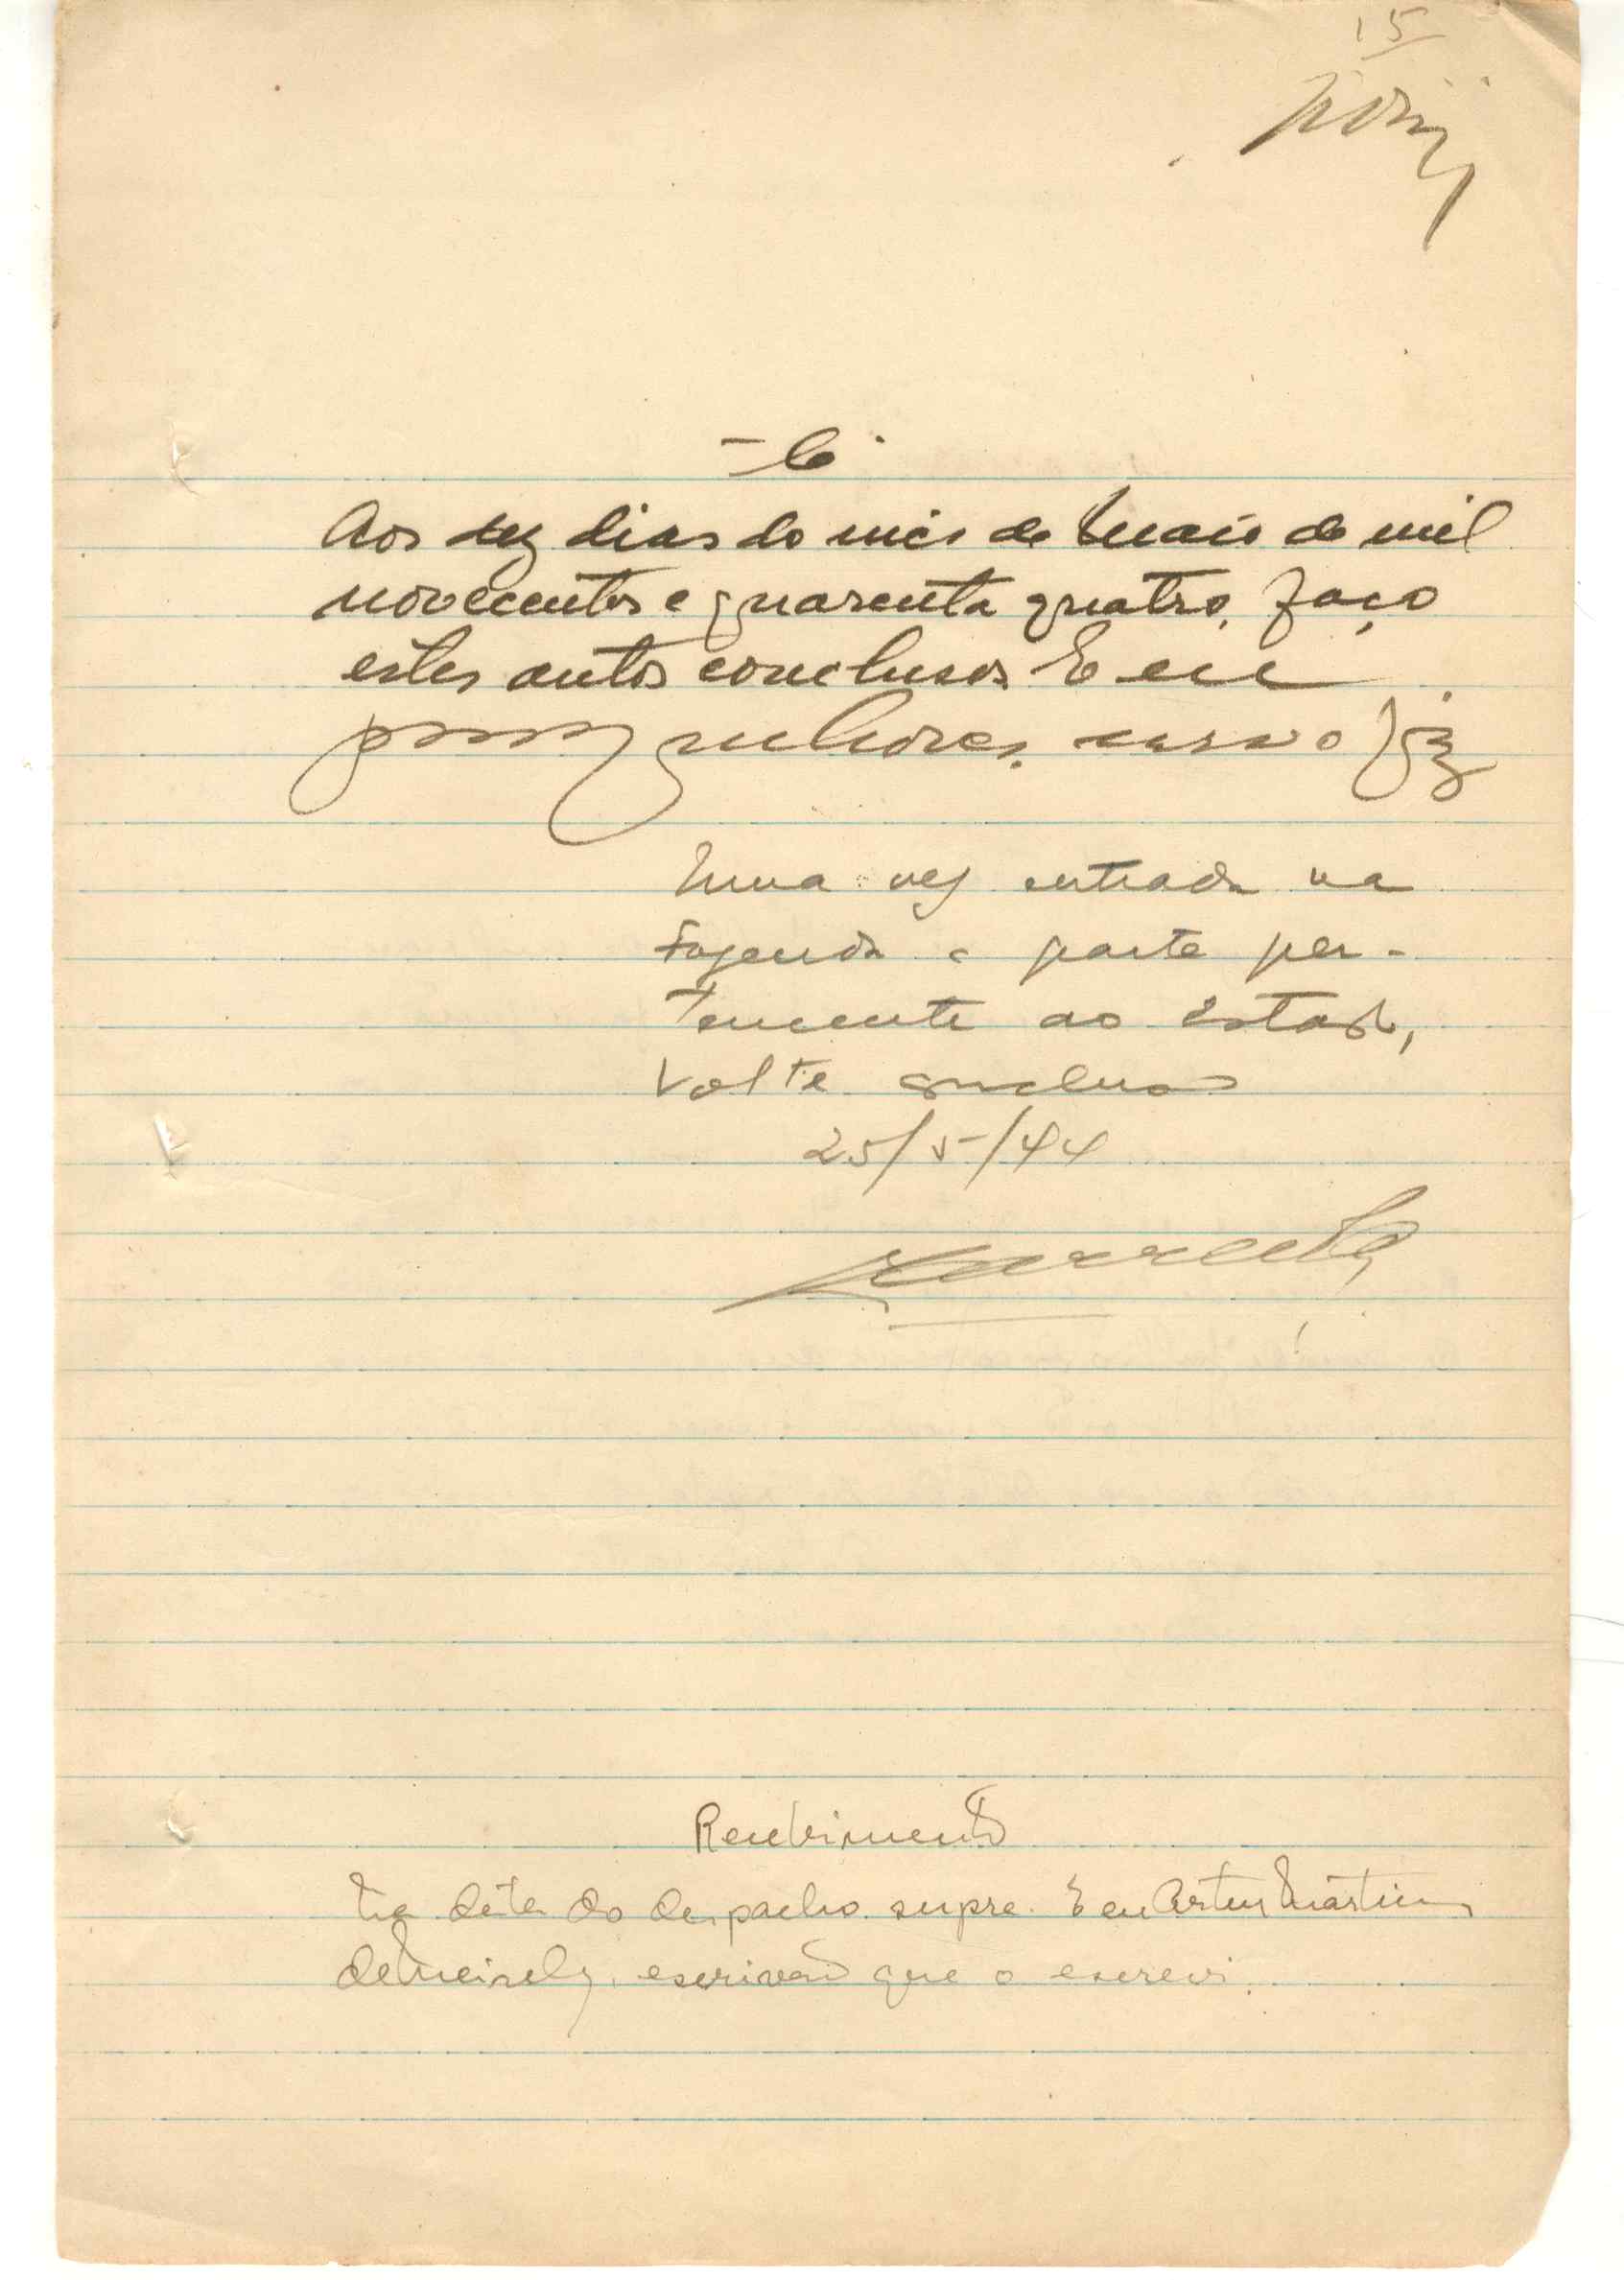 15
Aos dez dias do mês de Maio de mil
novecentos e quarenta quatro, faço
estes autos conclusos. E eu
o fiz
Uma vez entrada na
Fazenda a parte per-
tencente ao Estado,
Volte conclusos
25/5/44
Recebimento
Na data do despacho supra. E eu Artur Martins
escrivão que o escrevi.